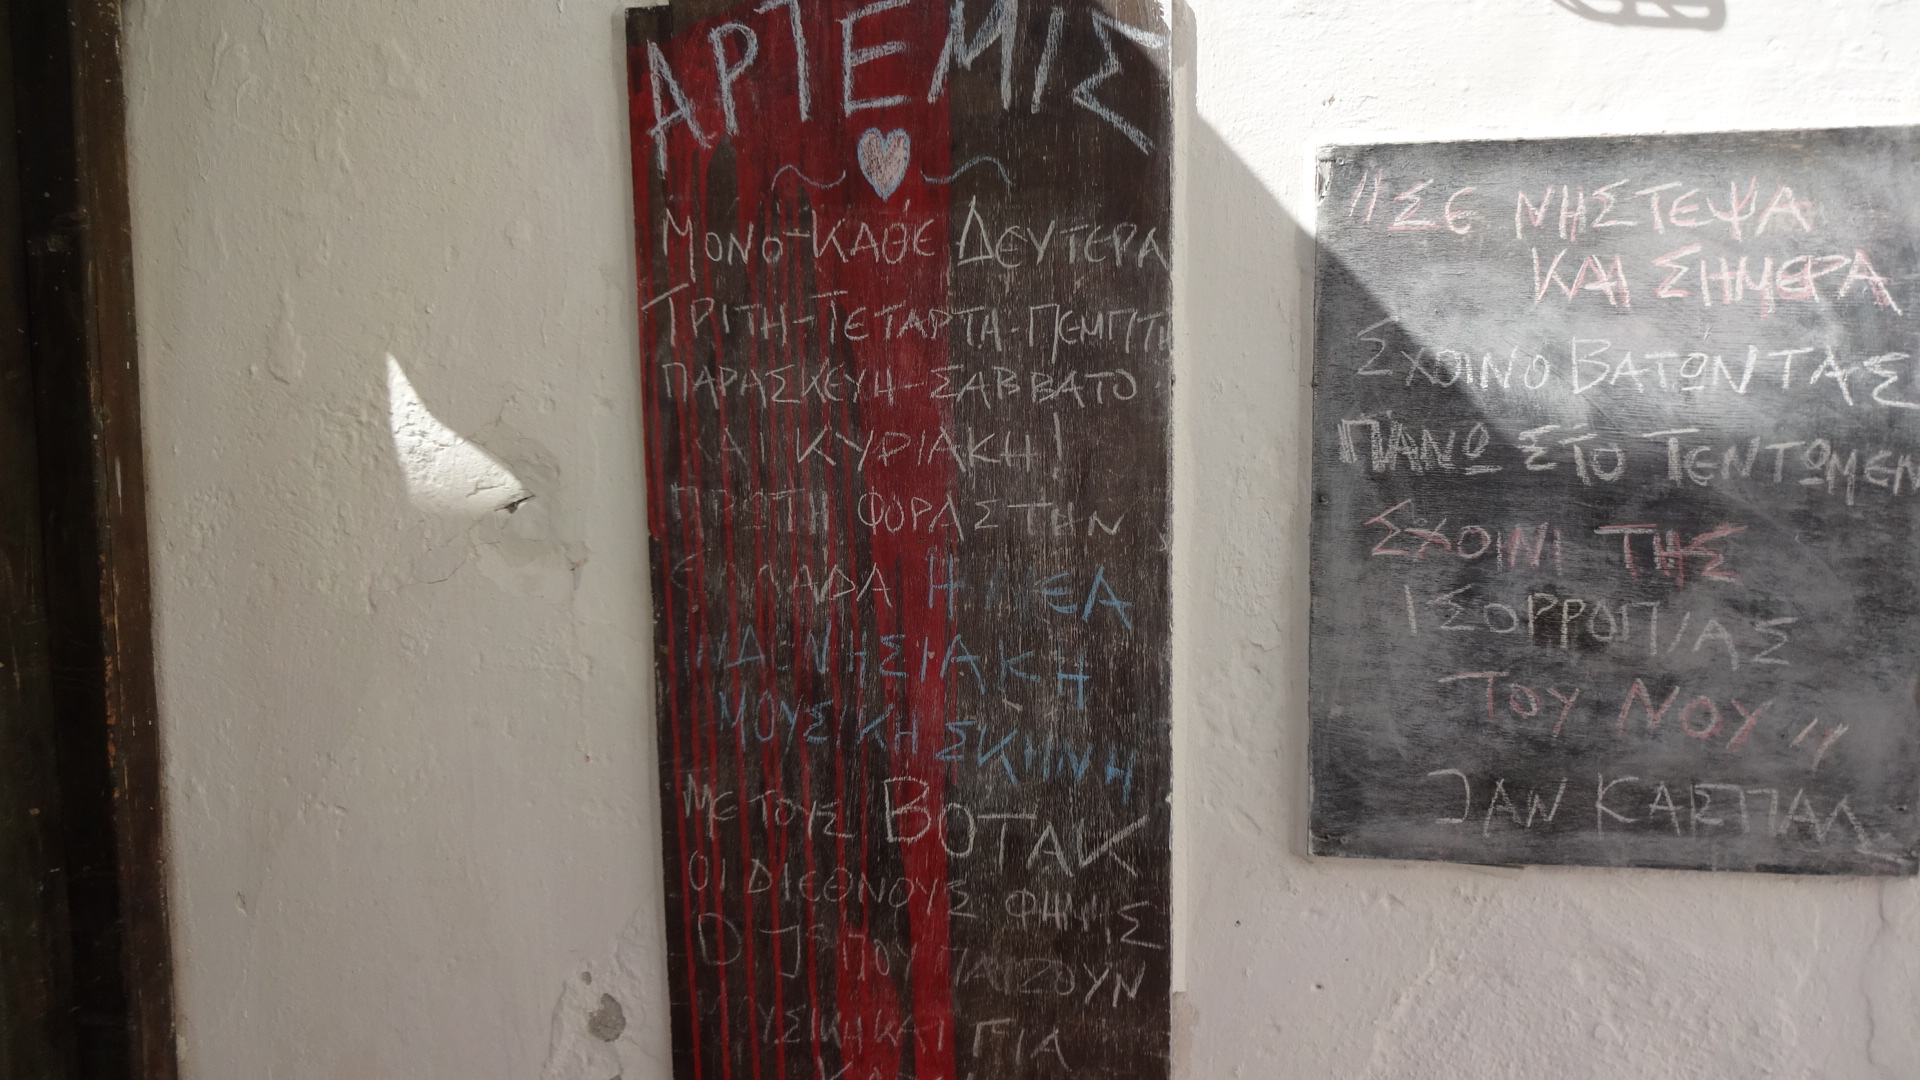 ΑΡΤΕΜΙΣ
ΜΟΝΟ-ΚΑΘΕ ΔΕΥΤΕΡΑ
ΤΡΙΤΗ-ΤΕΤΑΡΤΑ-ΠΕΜΠΤΗ
ΠΑΡΑΣΚΕΥΗ-ΣΑΒΒΑΤΟ
ΚΑΙ ΚΥΡΙΑΚΗ!
ΠΡΩΤΗ ΦΟΡΑ ΣΤΗΝ
ΕΛΛΑΔΑ Η ΝΕΑ
ΝΗΣΙΑΚΗ
ΜΟΥΣΙΚΗ ΣΚΗΝΗ
ΜΕ ΤΟΥΣ ΒΟΤΑΚ
ΟΙ ΔΙΕΘΝΟΥΣ ΦΗΜΗΣ
DJˢ ΠΟΥ ΠΑΙΖΟΥΝ
ΜΟΥΣΙΚΗ ΚΑΙ ΓΙΑ
"ΣΕ ΝΗΣΤΕΨΑ
ΚΑΙ ΣΗΜΕΡΑ
ΣΧΟΙΝΟΒΑΤΩΝΤΑΣ
ΠΑΝΩ ΣΤΟ ΤΕΝΤΩΜΕΝ
ΣΧΟΙΝΙ ΤΗΣ
ΙΣΟΡΡΟΠΙΑΣ
ΤΟΥ ΝΟΥ"
JΑΝ ΚΑΣΠΑΛΣ